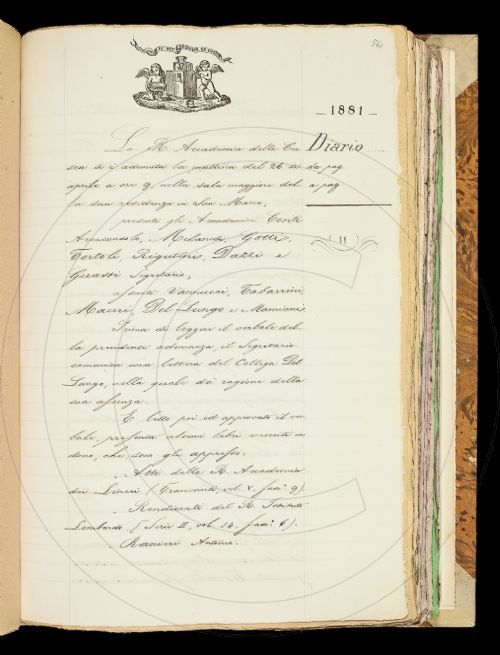 561
– 1881 –
Diario
da pag
a pag
11
La R. Accademia della Cru
sca si è adunata la mattina del 26 di
aprile a ore 9 nella sala maggiore del
la sua residenza in San Marco,
presenti gli Accademici Conti
Arciconsolo, Milanesi, Gotti,
Tortoli, Rigutini, Dazzi e
Guasti Segretario,
assenti Vannucci, Tabarrini
Mauri, Del Lungo e Mamiani.
Prima di leggere il verbale del
la precedente adunanza il Segretario
comunica una lettera del Collega Del
Lungo, nella quale dà ragione della
sua assenza.
E letto poi ed approvato il ver
bale, presenta alcuni libri venuti in
dono, che sono gli appresso:
Atti della R. Accademia
dei Lincei (Transunti, vol. V. fasc. 9).
Rendiconti del R. Istituto
Lombardo. (Serie II, vol. 14. fasc. 6).
Ranieri Antonio.